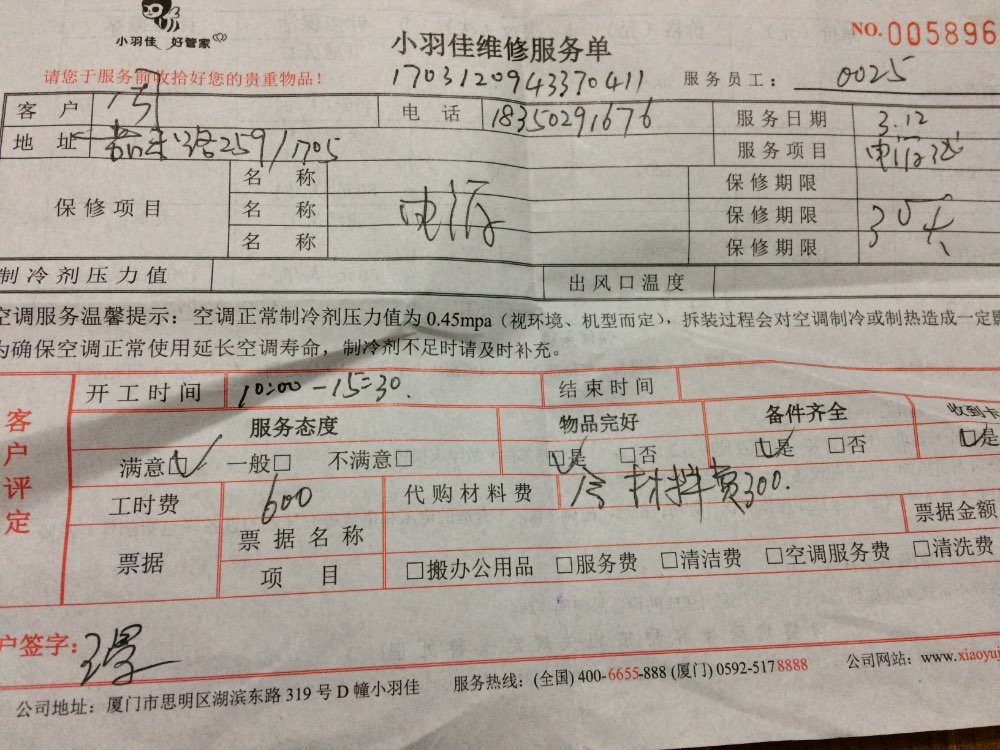 小羽佳 好管家
小羽佳维修服务单
NO.005896
请您于服务前收拾好您的贵重物品！
1703120943370411
服务员工： 0025
客 户
电 话 18350291676
服务日期 3.12
地 址 259/1705
服务项目
保修项目
名 称 电源 保修期限
名 称 保修期限 30天
名 称 保修期限
制冷剂压力值 出风口温度
空调服务温馨提示：空调正常制冷剂压力值为 0.45mpa（视环境、机型而定），拆装过程会对空调制冷或制热造成一定
为确保空调正常使用延长空调寿命，制冷剂不足时请及时补充。
客户评定
开工时间 10:00-15:30. 结束时间
服务态度 物品完好 备件齐全 收到
满意☑ 一般□ 不满意□ ☑是 □否 ☑是 □否 ☑是
工时费 600 代购材料费 含 材料费300.
票据 票据名称 票据金额
项 目 □搬办公用品 □服务费 □清洁费 □空调服务费 □清洗费
户签字：
公司地址：厦门市思明区湖滨东路 319 号 D 幢小羽佳 服务热线：(全国) 400-6655-888 (厦门) 0592-5178888 公司网站：www.xiaoyuj